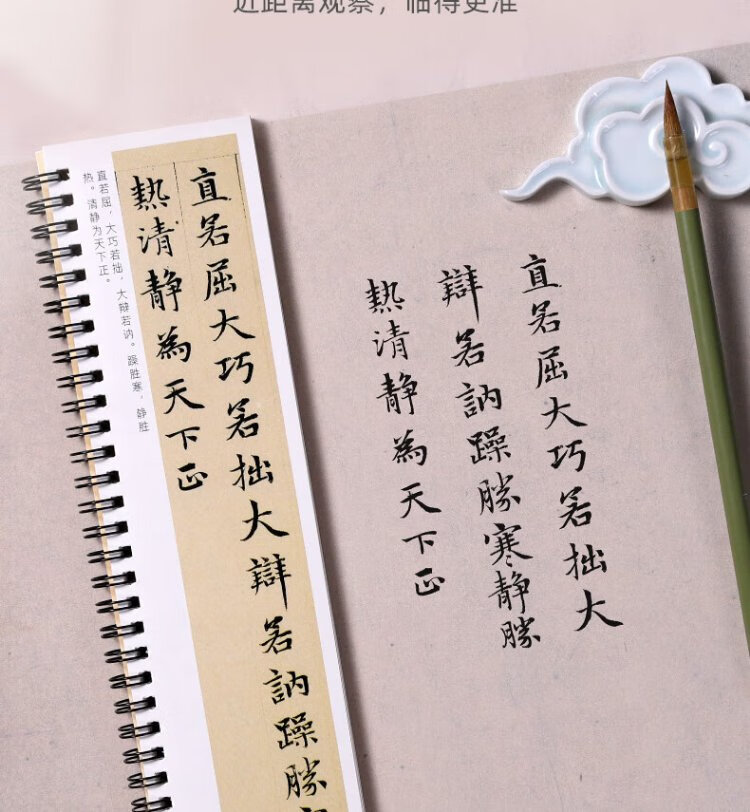 近距离观察，临得更准
直若屈，大巧若拙，大辩若讷。躁胜寒，静胜
热。清静为天下正。
直若屈大巧若拙大辯若訥躁勝
熱清静為天下正
直若屈大巧若拙大
辯若訥躁勝寒静勝
熱清静為天下正